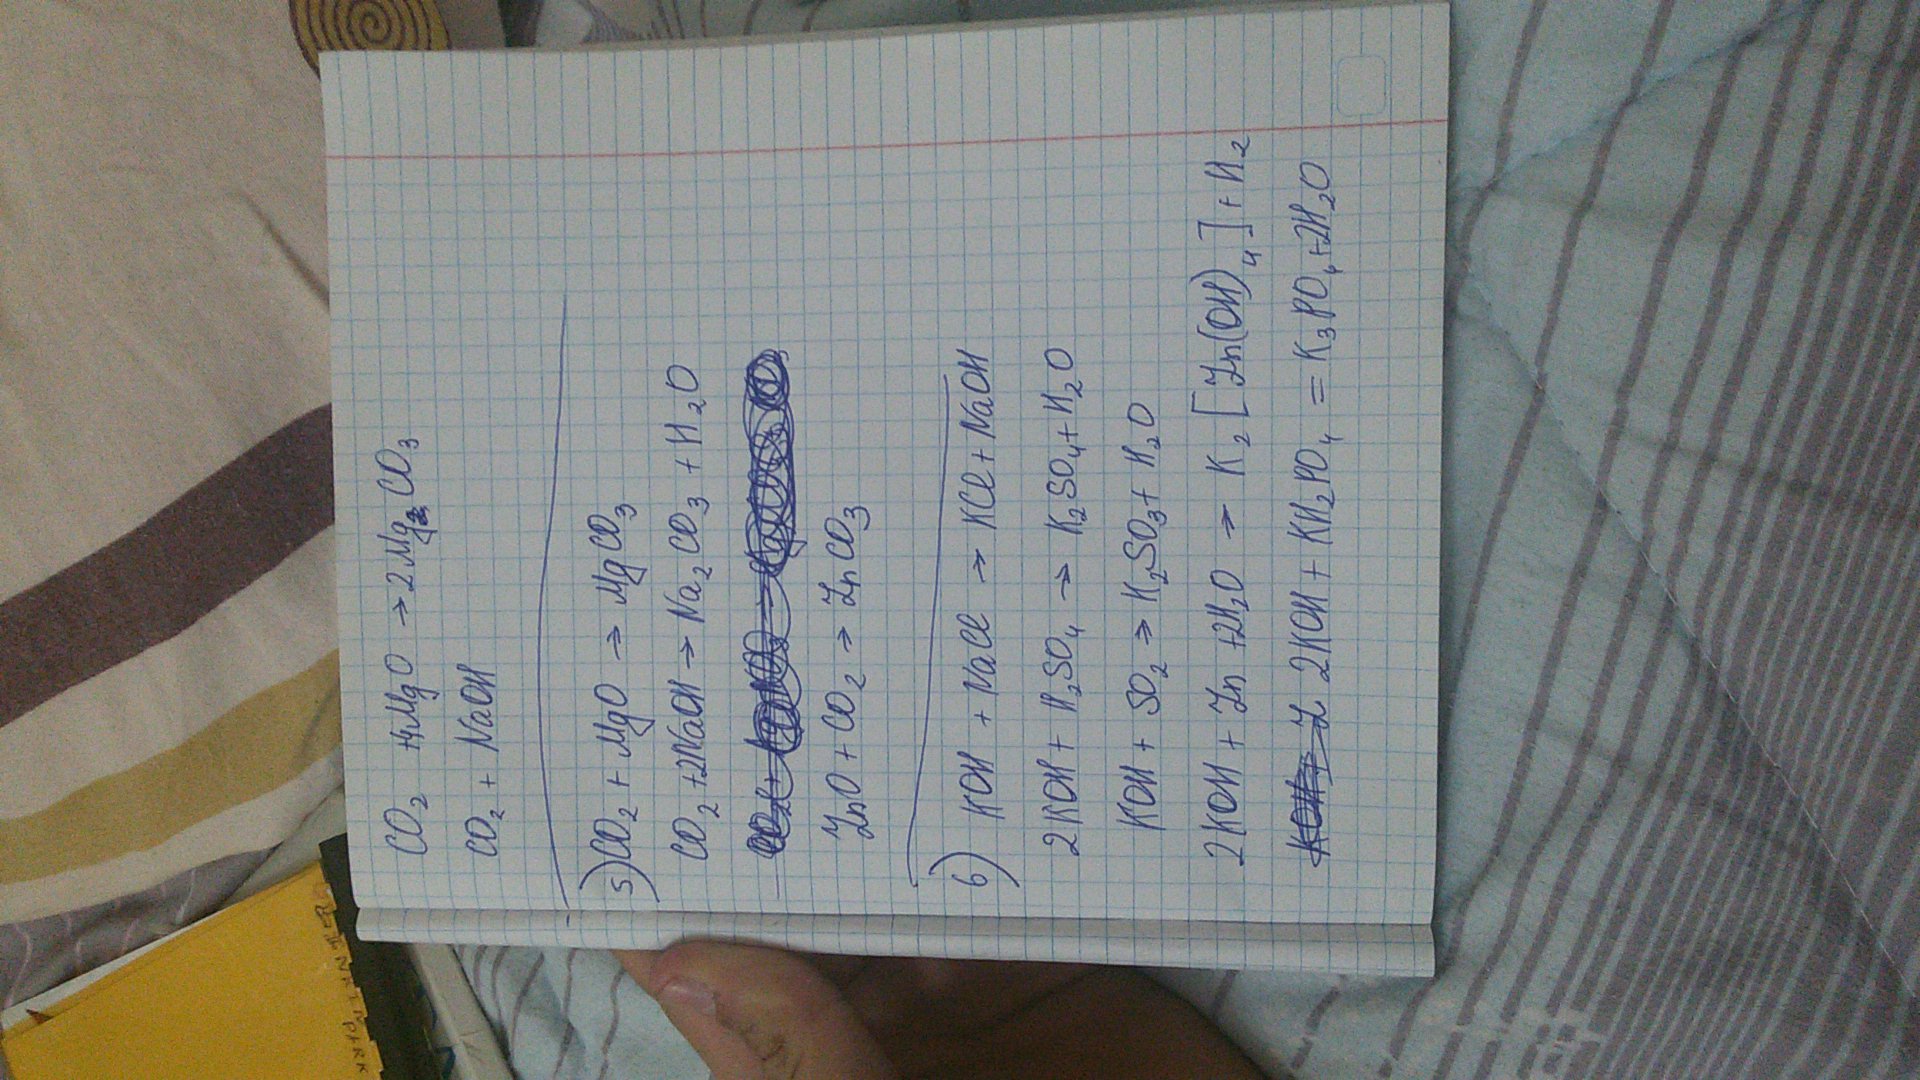 CO₂ + 4MgO → 2MgCO₃
CO₂ + NaOH
5) CO₂ + MgO → MgCO₃
CO₂ + 2NaOH → Na₂CO₃ + H₂O
ZnO + CO₂ → ZnCO₃
6) KOH + NaCl → KCl + NaOH
2KOH + H₂SO₄ → K₂SO₄ + H₂O
KOH + SO₂ → K₂SO₃ + H₂O
2KOH + Zn + 2H₂O → K₂[Zn(OH)₄] + H₂
2KOH + KH₂PO₄ = K₃PO₄ + 2H₂O